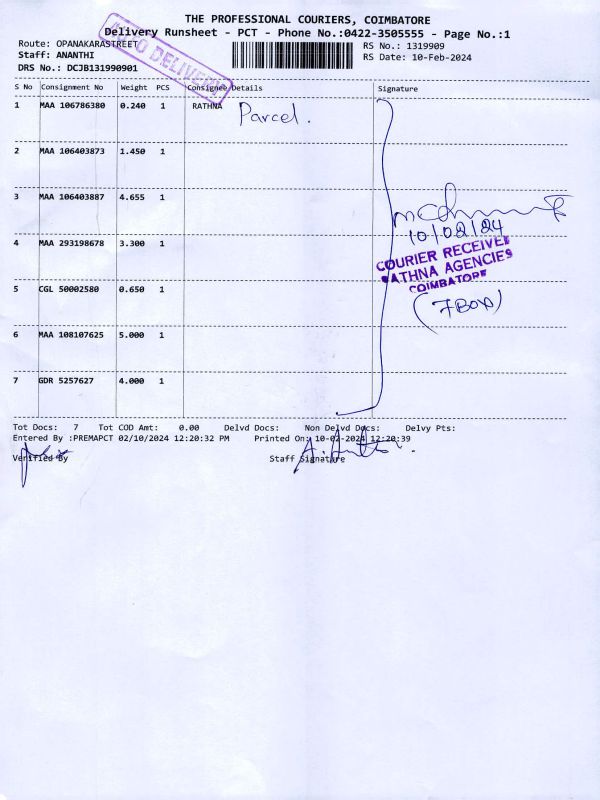 THE PROFESSIONAL COURIERS, COIMBATORE
Delivery Runsheet - PCT - Phone No.:0422-3505555 - Page No.:1
Route: OPANAKARASTREET
RS No.: 1319909
Staff: ANANTHI
RS Date: 10-Feb-2024
DRS No.: DCJB131990901
DELIVERY
S No Consignment No Weight PCS Consignee Details Signature
1 MAA 106786380 0.240 1 RATHNA Parcel.
2 MAA 106403873 1.450 1
3 MAA 106403887 4.655 1
10/02/24
4 MAA 293198678 3.300 1
COURIER RECEIVED
RATHNA AGENCIES
COIMBATORE
5 CGL 50002580 0.650 1
(7 BOX)
6 MAA 108107625 5.000 1
7 GDR 5257627 4.000 1
Tot Docs: 7 Tot COD Amt: 0.00 Delvd Docs: Non Delvd Docs: Delvy Pts:
Entered By :PREMAPCT 02/10/2024 12:20:32 PM Printed On: 10-02-2024 12:20:39
Verified By Staff Signature